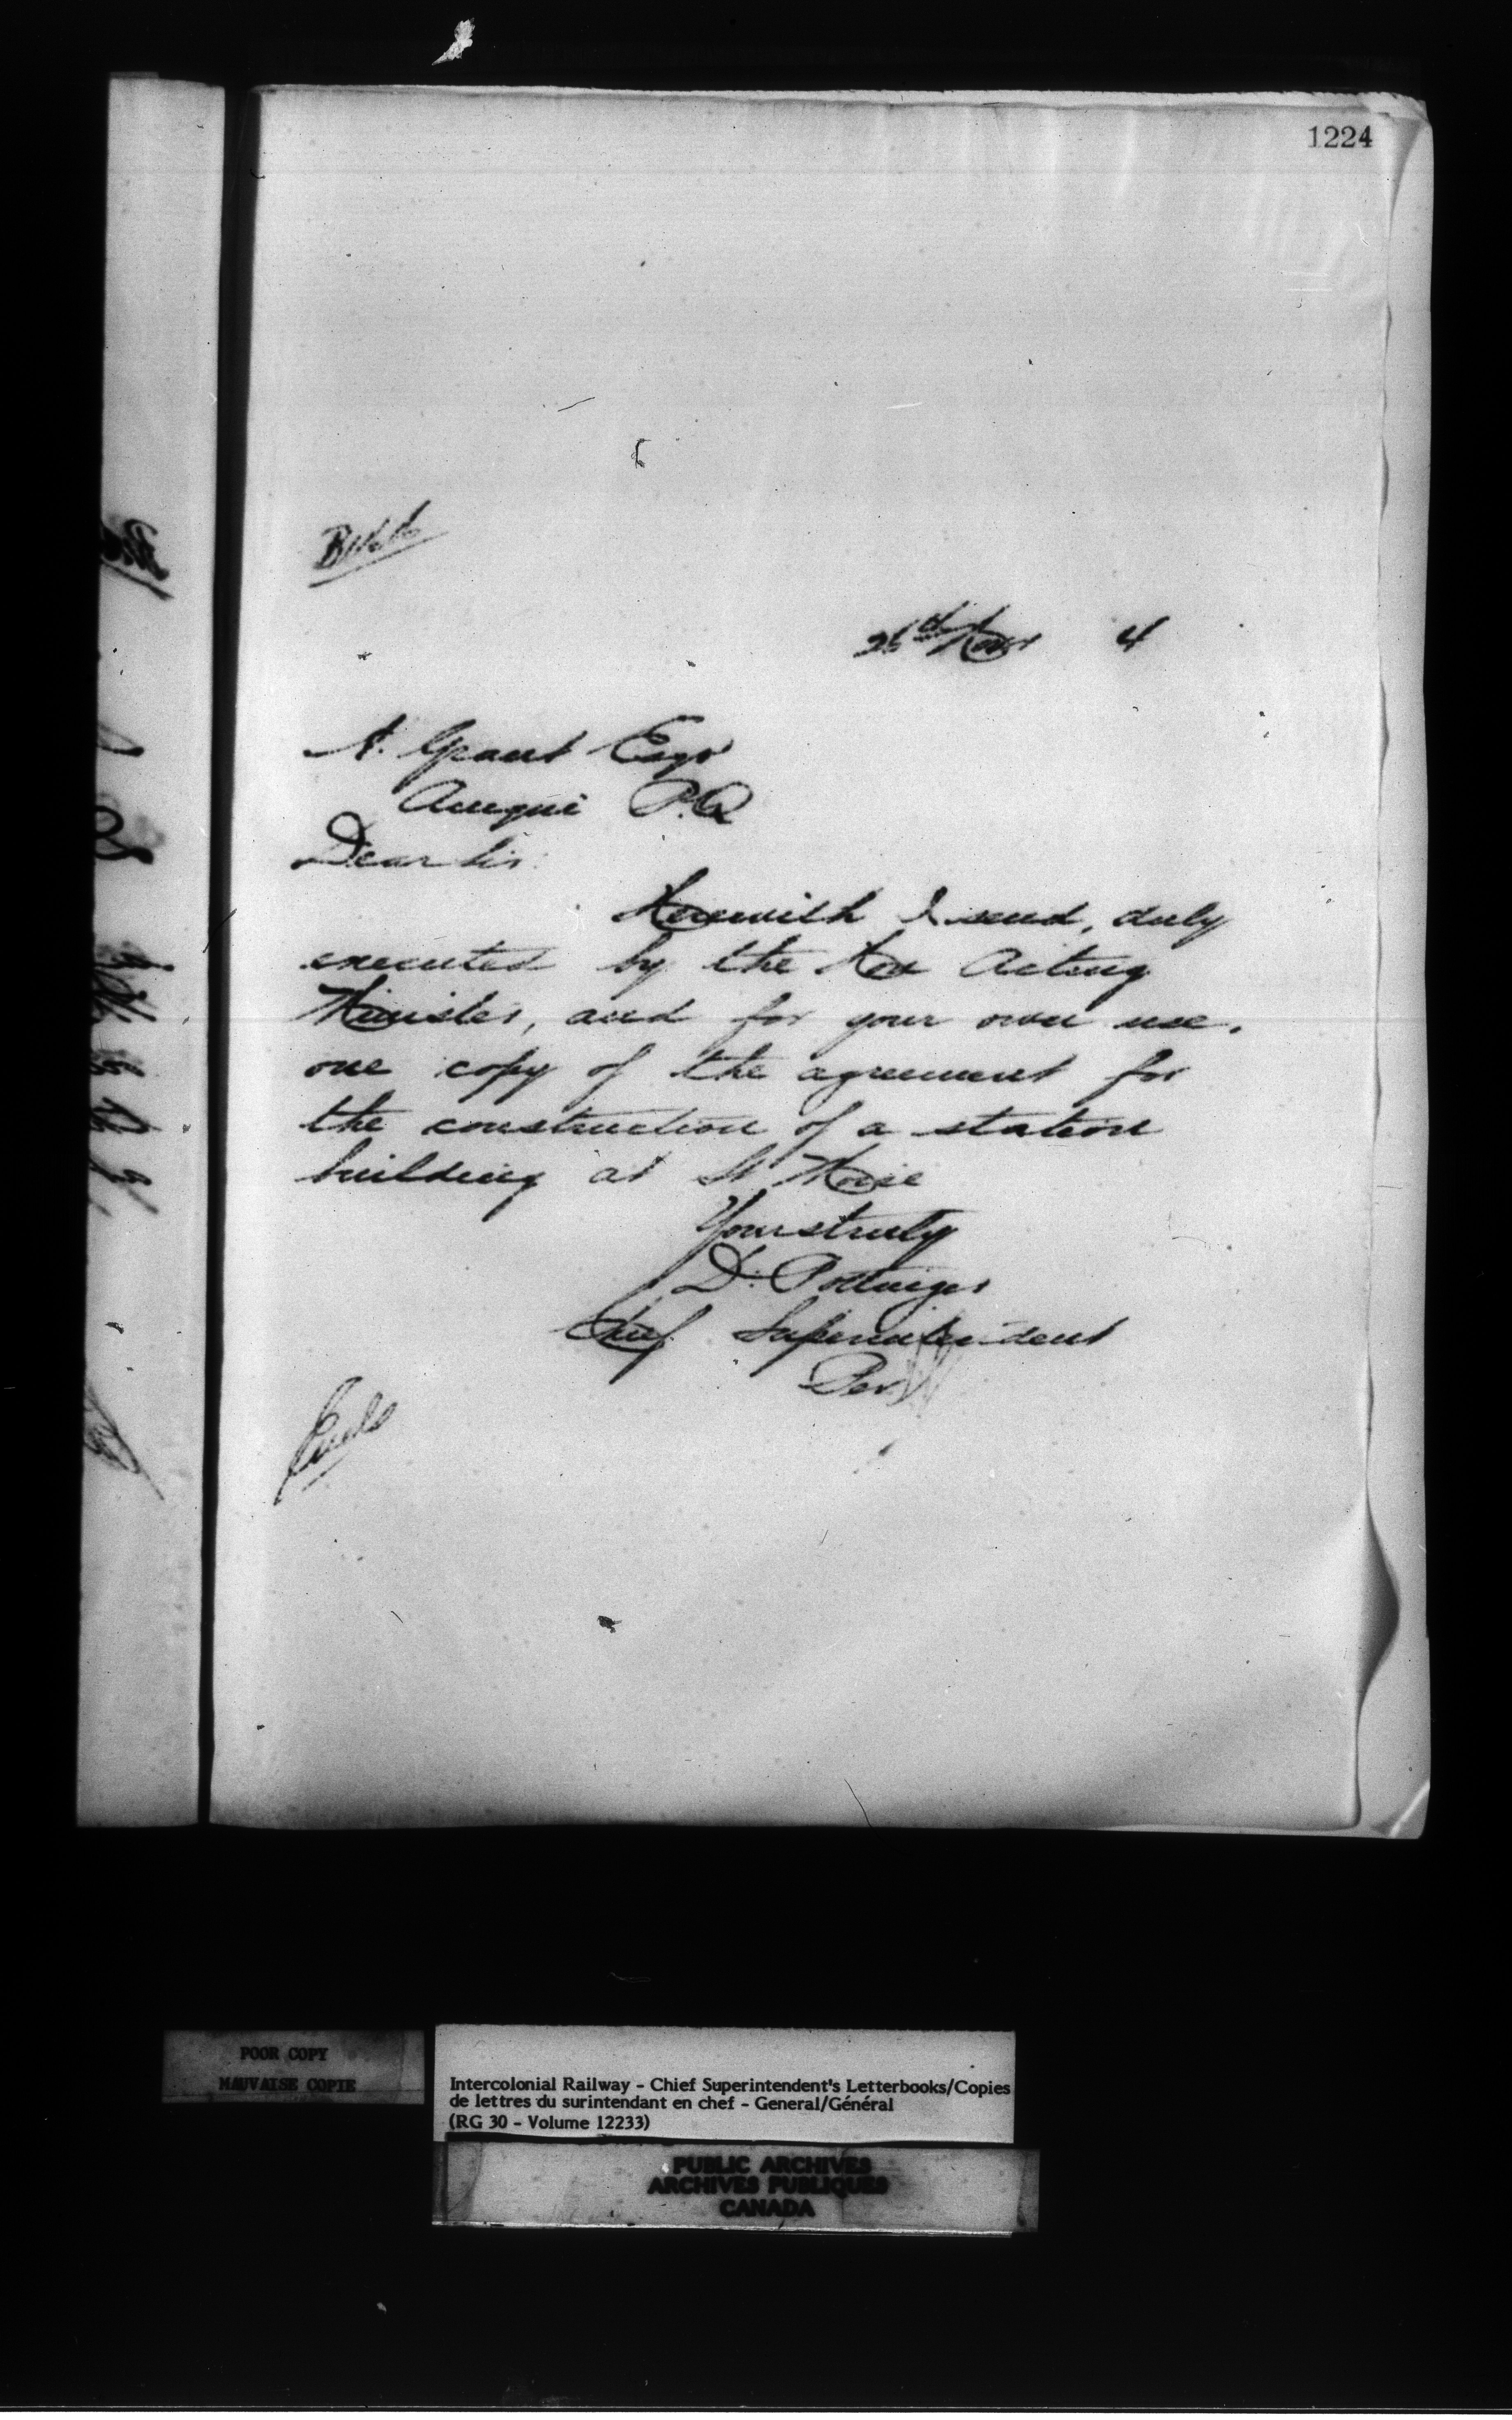 1224
26th Nov 4
A. Grant Esqr
Amqui P.Q
Dear Sir:
Herewith I send, duly
executed by the Hon Acting
Minister, and for your own use,
one copy of the agreement for
the construction of a station
building at St Moise
Yours truly
D. Pottinger
Chief Superintendent
Per
Encls
POOR COPY
MAUVAISE COPIE
Intercolonial Railway - Chief Superintendent's Letterbooks/Copies
de lettres du surintendant en chef - General/Général
(RG 30 - Volume 12233)
PUBLIC ARCHIVES
ARCHIVES PUBLIQUES
CANADA